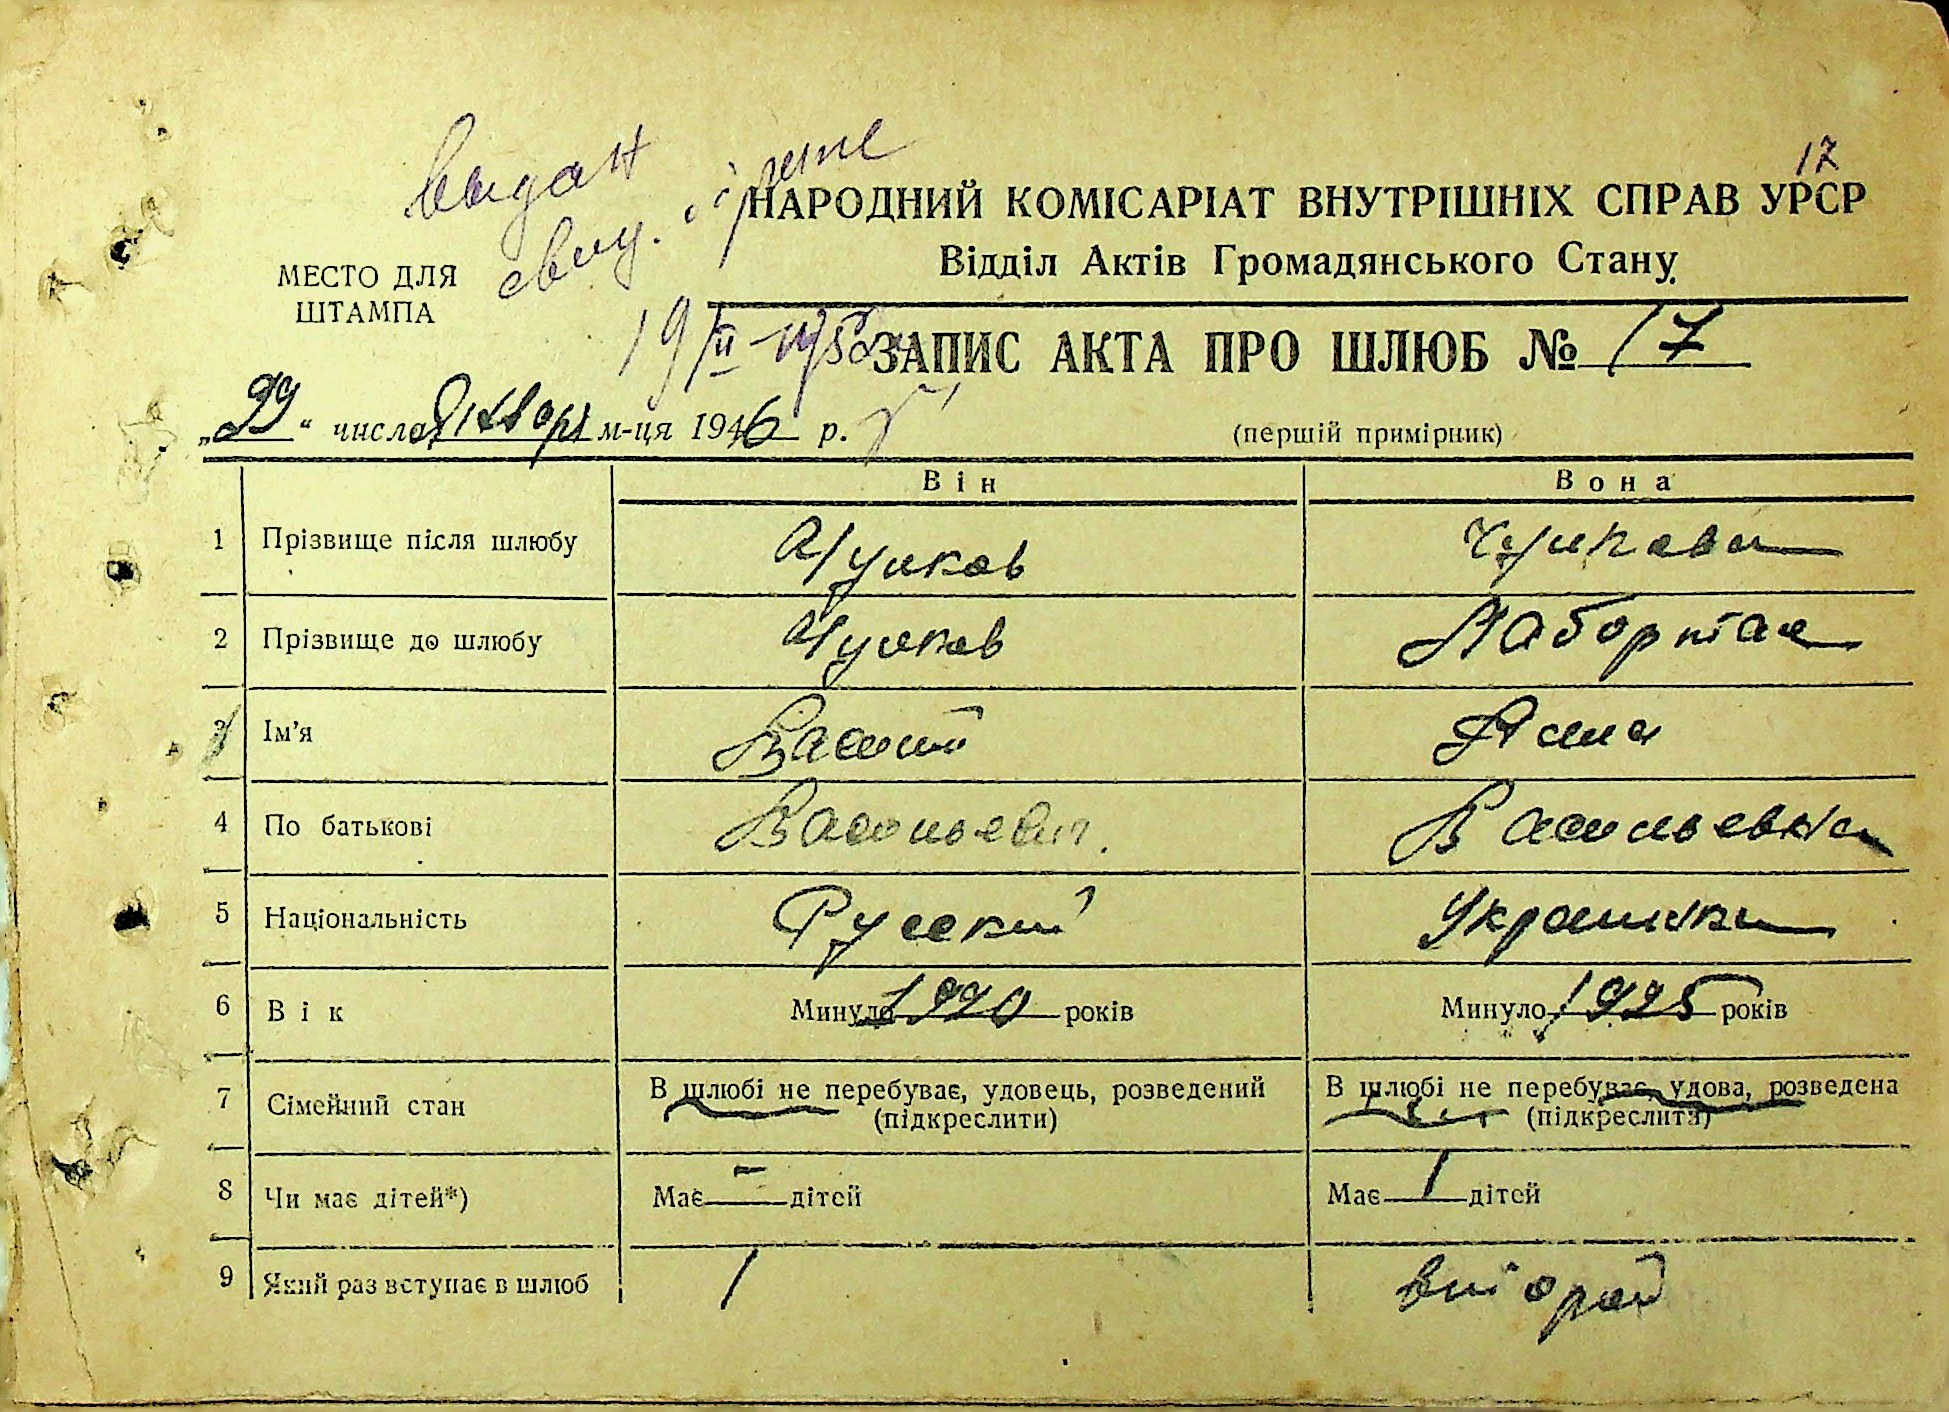 17
выдан
НАРОДНИЙ КОМІСАРІАТ ВНУТРІШНІХ СПРАВ УРСР
Відділ Актів Громадянського Стану
МЕСТО ДЛЯ
ШТАМПА
ЗАПИС АКТА ПРО ШЛЮБ № 17
" " числа м-ця 1946 р.
(перший примірник)
Він Вона
1 Прізвище після шлюбу
2 Прізвище до шлюбу
3 Ім'я Василий Анна
4 По батькові Васильевич. Васильевна
5 Національність Русский Украинка
6 Вік Минуло 1920 років Минуло 1925 років
7 Сімейний стан В шлюбі не перебуває, удовець, розведений (підкреслити) В шлюбі не перебуває, удова, розведена (підкреслити)
8 Чи має дітей*) Має - дітей Має 1 дітей
9 Який раз вступає в шлюб 1 второй